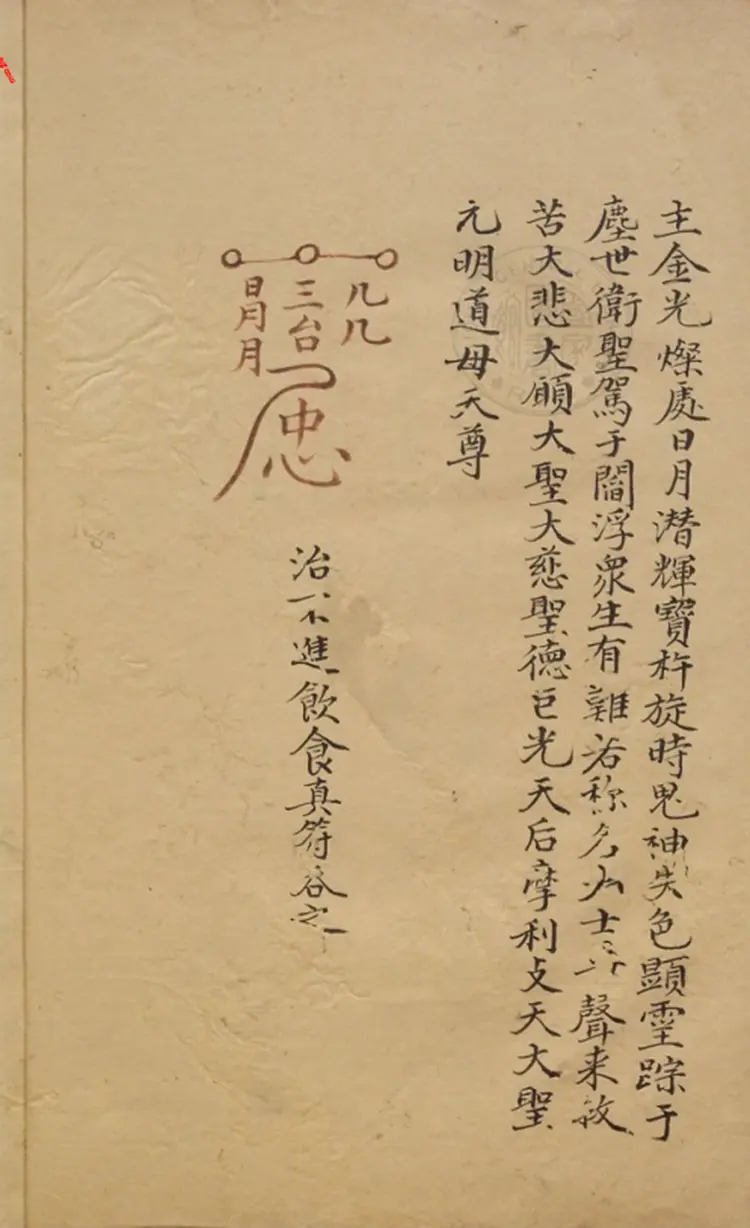 主金光燦處日月潛輝寶杵旋時鬼神失色顯靈踪于
塵世衛聖駕于閻浮眾生有難若称名大士尋聲来救
苦大悲大願大聖大慈聖德巨光天后摩利攴天大聖
元明道母天尊
八八
三台
日月月
忠
治不進飲食真符吞之